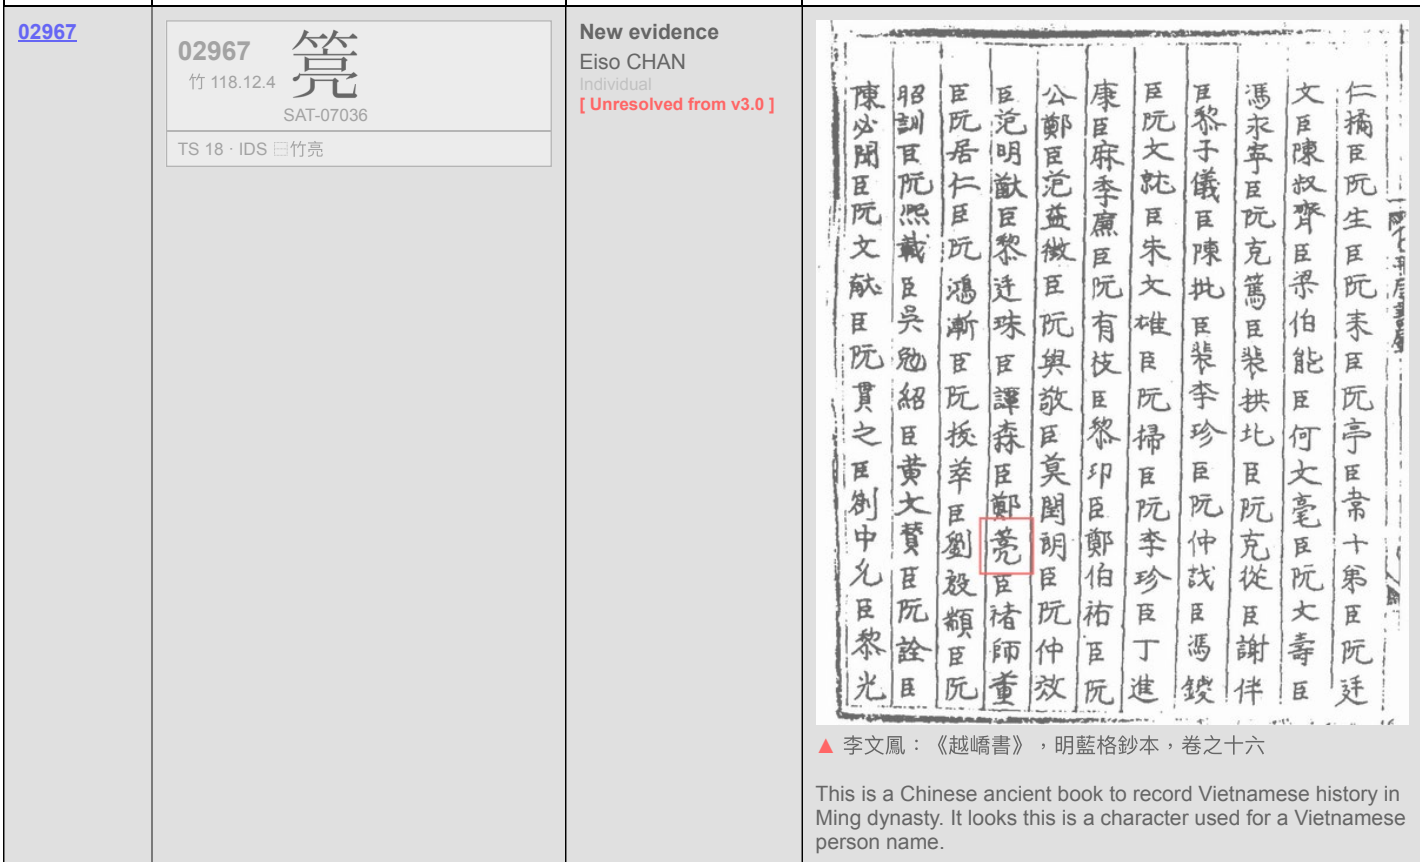 02967
02967
竹 118.12.4
SAT-07036
TS 18 · IDS ⿱竹亮
New evidence
Eiso CHAN
Individual
[ Unresolved from v3.0 ]
仁橘臣阮生臣阮耒臣阮亭臣常十第臣阮廷
文臣陳叔齊臣梁伯能臣何文毫臣阮文壽臣
馮永寧臣阮克篤臣裴拱北臣阮克從臣謝伴
臣黎子儀臣陳批臣裴李珍臣阮仲臣馮
臣阮文就臣朱文雄臣阮掃臣阮李珍臣丁進
康臣麻季廉臣阮有枝臣黎印臣鄭伯祐臣阮
公鄭臣范益微臣阮與敬臣莫閏朗臣阮仲效
臣范明猷臣黎廷珠臣譚森臣鄭臣褚師董
臣阮居仁臣阮鴻漸臣阮拔萃臣劉殷臣阮
昭訓臣阮熙載臣吳勉紹臣黃文贊臣阮詮臣
陳必聞臣阮文献臣阮貫之臣劉中允臣黎光
▲ 李文鳳：《越嶠書》，明藍格鈔本，卷之十六
This is a Chinese ancient book to record Vietnamese history in
Ming dynasty. It looks this is a character used for a Vietnamese
person name.